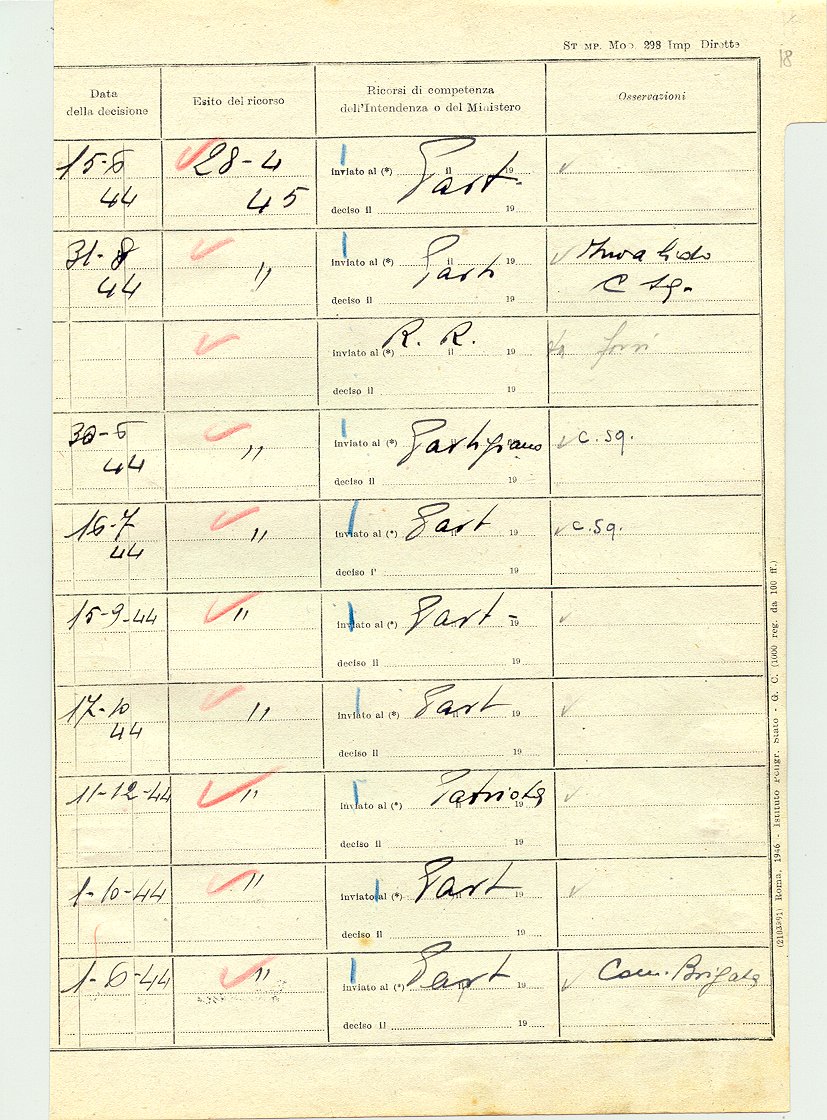 STAMP. MOD. 298 Imp. Dirette
18
Data
della decisione
Esito del ricorso
Ricorsi di competenza
dell'Intendenza o del Ministero
Osservazioni
15-6
44
28-4
45
Part.
inviato al (*) il 19
deciso il 19
31-8
44
"
Part
inviato al (*) il 19
deciso il 19
Invalido
C Sq.
R. R.
inviato al (*) il 19
deciso il 19
30-6
44
"
Partigiano
inviato al (*) il 19
deciso il 19
C. Sq.
16-7
44
"
Part
inviato al (*) il 19
deciso il 19
C. Sq.
15-9-44
"
Part-
inviato al (*) il 19
deciso il 19
17-10
44
"
Part
inviato al (*) il 19
deciso il 19
11-12-44
"
Patriota
inviato al (*) il 19
deciso il 19
1-10-44
"
Part
inviato al (*) il 19
deciso il 19
1-6-44
"
Part
inviato al (*) il 19
deciso il 19
Com. Brigata
(2103991) Roma, 1946 - Istituto Poligr. Stato - G. C. (1000 reg. da 100 ff.)